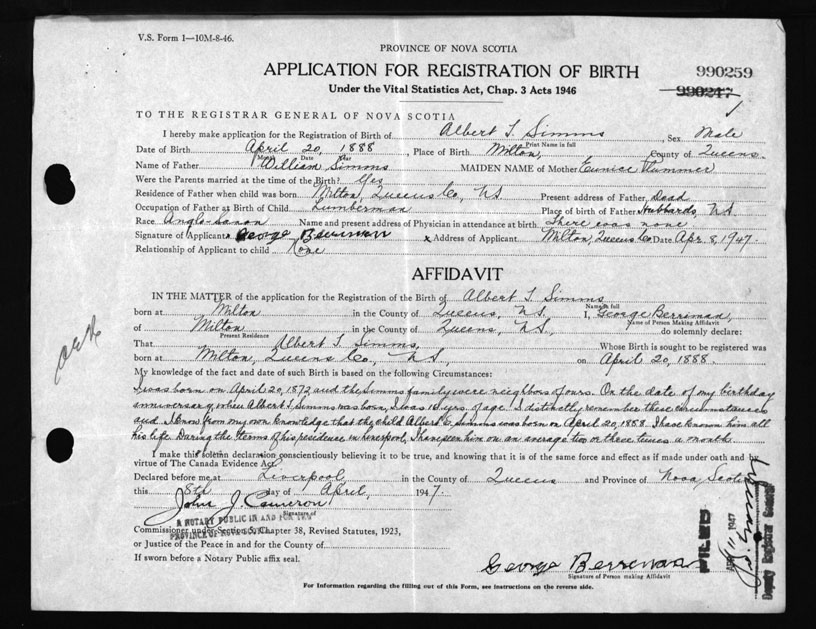 V.S. Form 1—10M-8-46.
PROVINCE OF NOVA SCOTIA
APPLICATION FOR REGISTRATION OF BIRTH
990259
Under the Vital Statistics Act, Chap. 3 Acts 1946
990247
TO THE REGISTRAR GENERAL OF NOVA SCOTIA
I hereby make application for the Registration of Birth of Albert T. Simms Sex Male
Print Name in full
Date of Birth April 20, 1888 , Place of Birth Milton, County of Queens.
Month Date Year
Name of Father William Simms MAIDEN NAME of Mother Eunice Plummer
Were the Parents married at the time of the Birth? Yes
Residence of Father when child was born Milton, Queens Co., N.S. Present address of Father Dead
Occupation of Father at Birth of Child Lumberman Place of birth of Father Hubbards, N.S.
Race Anglo-Saxon Name and present address of Physician in attendance at birth There was none
Signature of Applicant x George Berriman x Address of Applicant Milton, Queens Co. Date Apr. 8, 1947.
Relationship of Applicant to child None
AFFIDAVIT
IN THE MATTER of the application for the Registration of the Birth of Albert T. Simms
Name in full
born at Milton in the County of Queens, N.S. I, George Berriman,
Name of Person Making Affidavit
of Milton in the County of Queens, N.S., do solemnly declare:
Present Residence
That Albert T. Simms, Whose Birth is sought to be registered was
born at Milton, Queens Co., N.S., on April 20, 1888.
My knowledge of the fact and date of such Birth is based on the following Circumstances:
I was born on April 20, 1872 and the Simms family were neighbors of ours. On the date of my birthday
anniversary, when Albert T. Simms was born, I was 16 yrs. of age. I distinctly remember these circumstances
and I know from my own knowledge that the child Albert T. Simms was born on April 20, 1888. I have known him all
his life. During the terms of his residence in Liverpool, I have seen him on an average two or three times a month.
I make this solemn declaration conscientiously believing it to be true, and knowing that it is of the same force and effect as if made under oath and by
virtue of The Canada Evidence Act.
Declared before me at Liverpool in the County of Queens and Province of Nova Scotia
this 8th day of April, 1947.
John J. Cameron
Signature of
A NOTARY PUBLIC IN AND FOR THE
PROVINCE OF NOVA SCOTIA
Commissioner under Section 5, Chapter 38, Revised Statutes, 1923,
or Justice of the Peace in and for the County of
If sworn before a Notary Public affix seal.
George Berriman
Signature of Person making Affidavit
For Information regarding the filling out of this Form, see instructions on the reverse side.
FILED
1947
Deputy Registrar General